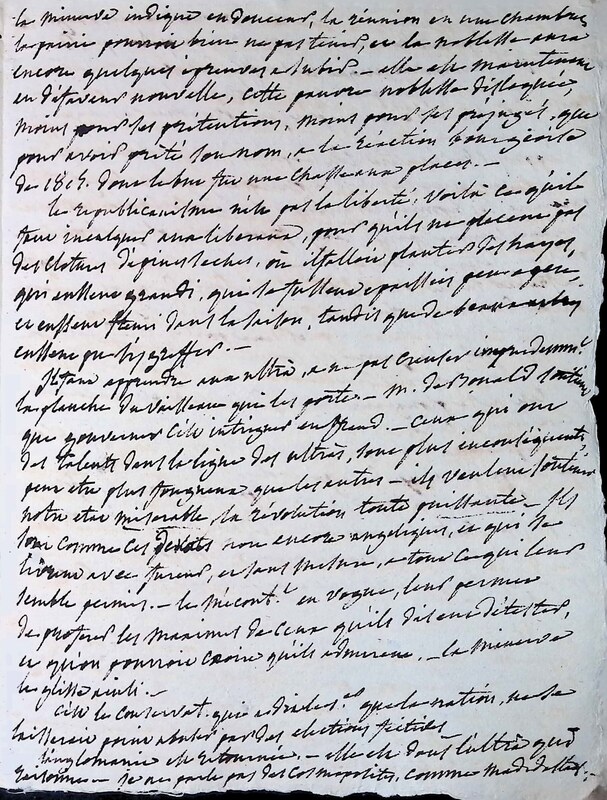 la minerve indique en douceur, la réunion en une chambre
la pairie pourroit bien ne pas tenir, et la noblesse aura
encore quelques épreuves à subir. – elle est maintenant
en défaveur nouvelle, cette pauvre noblesse disloquée,
moins pour ses prétentions, moins pour ses préjugés, que
pour avoir prêté son nom, a la réaction bourgeoise
de 1815. dont le but fut une chasse aux places. –
le républicanisme n'est pas la liberté, voilà ce qu'il
faut inculquer aux liberaux, pour qu'ils ne placent pas
des clotures de pieux seches, où il falloit planter des hayes,
qui eussent grandi, qui se fussent epaissies peu a peu,
et eussent fleuri dans la saison, tandis que de beaux arbres
eussent pu s'y greffer. –
Il faut apprendre aux ultrà, a ne pas creuser imprudemmt
la planche du vaisseau qui les porte. – M. de Bonald soutient
que gouverner c'est intriguer en grand. – Ceux qui ont
des talents dans la ligne des ultràs, sont plus inconséquents
peut etre plus fougueux que les autres – ils veulent soutenir
notre etat misérable, la révolution toute puissante – Ils
sont comme ces dévots non encore angeliques, et qui se
livrent avec fureur, et sans mesure, a tout ce qui leur
semble permis. – le mécontt en vogue, leur permet
de professer les maximes de ceux qu'ils disent détester,
et qu'on pourroit croire qu'ils admirent. – la minerve
les glisse ainsi. –
C'est le conservat. que a dit que la nation, ne se
laisseroit point abuser par des elections factices
l'anglomanie est retournée. – elle est dans l'ultrà qui
– je ne parle pas des cosmopolites, comme